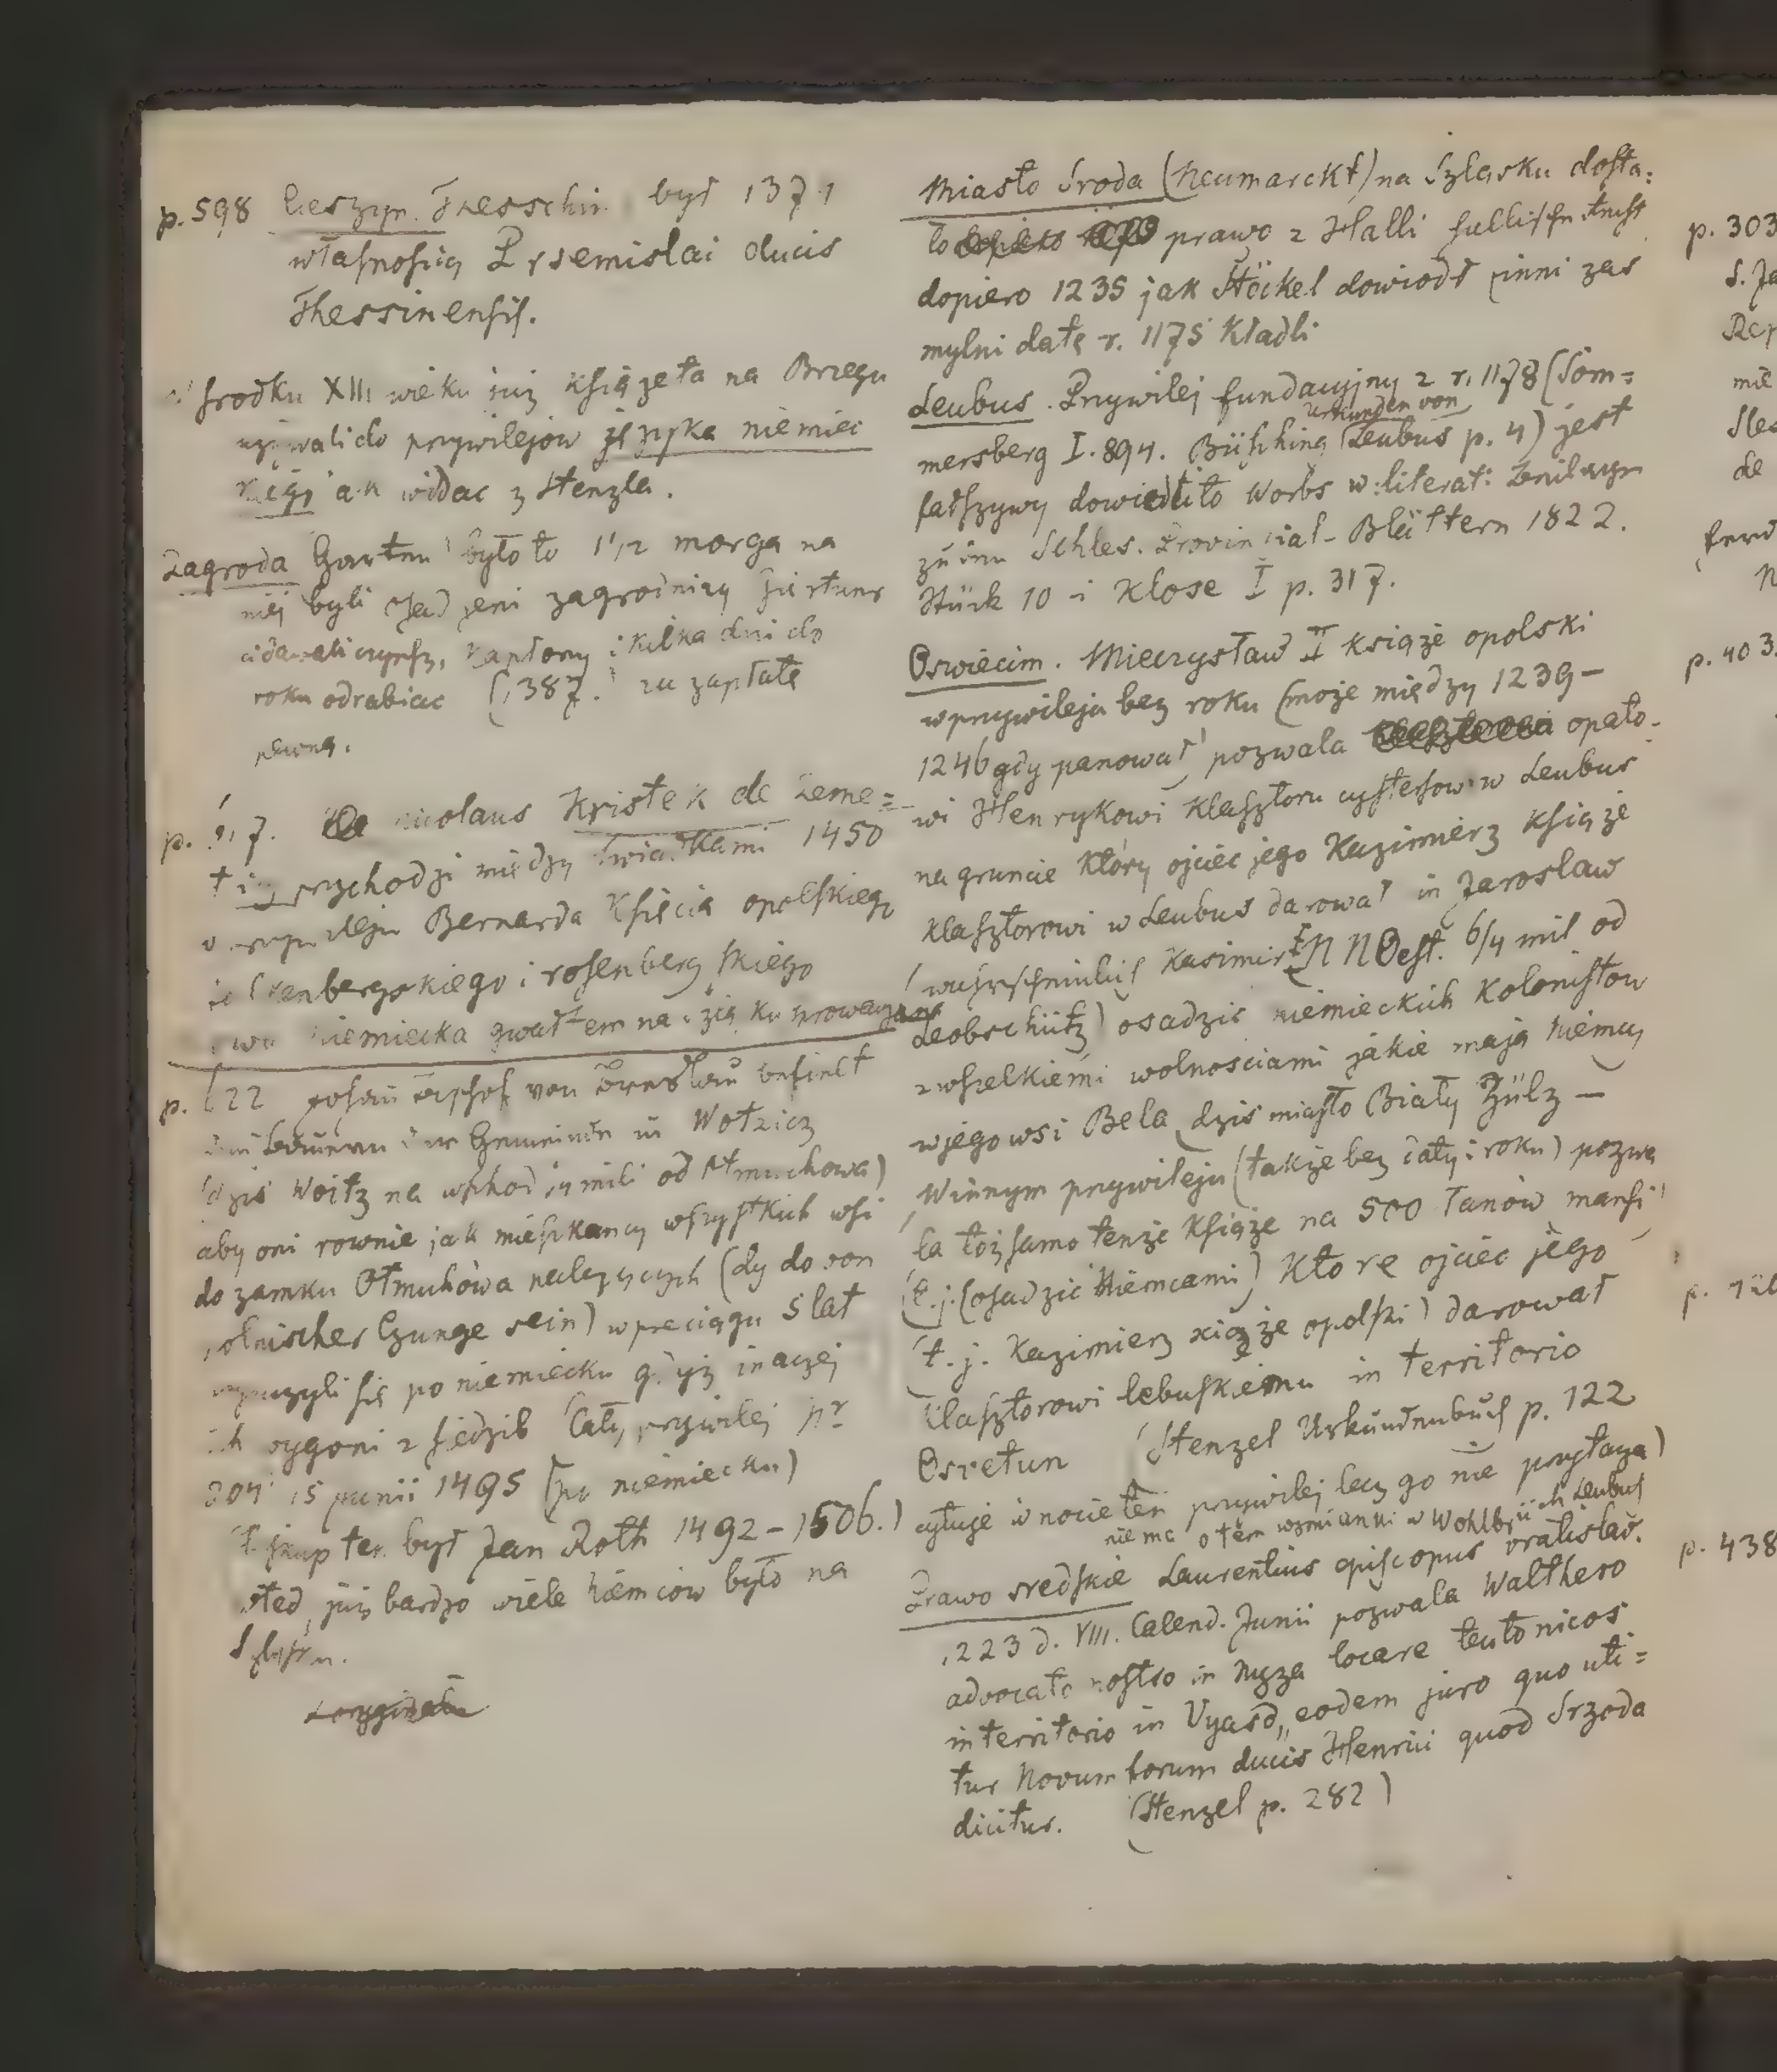 p. 598 Cieszyn. Thesschin był 1371
własnością Przemislai ducis
Thessinensis.
środku XIII wieku już książęta na Brzegu
używali do przywilejow języka niemiec
kiego jak widac z Stenzla.
Zagroda Garten było to 1 1/2 morga na
niej byli osadzeni zagrodnicy Gärtner
oddawali czynsz, kapłony i kilka dni do
roku odrabiac (1387. za zapłatę
pewną.
p. 617. Nicolaus Kristek de Zeme=
tiz przychodzi między świadkami 1450
w przywileju Bernarda księcia opolskiego
falkenbergskiego i rosenbergskiego
niemiecka gwałtem narzędzi ku prowadz
p. 622 Johan Bischof von Breslau befiehlt
den Bauern der Gemeinde in Wotzicz
(dziś Woitz na wschod 3/4 mili od Otmuchowa)
aby oni rownie jak mieszkancy wszystkich wsi
do zamku Otmuchowa nalezących (dy do von
polnischer Czunge sein) w przeciągu 5 lat
wyuczyli się po niemiecku gdyż inaczej
ich wygoni z siedzib Cały przywilej Nr
204 15 Junii 1495 (po niemiecku)
Biskup ten był Jan Roth 1492 - 1506.)
wted już bardzo wiele Niemcow było na
Szląsku.
Miasto Sroda (Neumarckt) na Szląsku dosta:
ło prawo z Halli hallisch Recht
dopiero 1235 jak Stöckel dowiodł inni zas
mylni datę r. 1175 kładli
Leubus. Przywilej fundacyjny z r. 1178 (Som=
mersberg I. 894. Büsching Urkunden von Leubus p. 4) jest
fałszywy dowiodł to Worbs w: literat: Beilagen
zu den Schles. Provincial-Blättern 1822.
Stück 10 i Klose I p. 317.
Oswiecim. Mieczysław II książe opolski
w przywileju bez roku (może między 1239 -
1246 gdy panował) pozwala opato-
wi Henrykowi klasztoru cystersow w Leubus
na gruncie który ojciec jego Kazimierz książe
klasztorowi w Leubus darował in Jaroslaw
(wahrscheinlich Kasimir NN Ost. 6/4 mil od
Leobschütz) osadzic niemieckich kolonistow
z wszelkiemi wolnosciami jakie mają Niemcy
w jego wsi Bela, dzis miasto Biały Zülz -
W innym przywileju (także bez daty i roku) pozwa
la toż samo tenże książe na 500 łanów mansi
(t. j. (osadzic Niemcami) które ojciec jego
(t. j. Kazimierz xiąże opolski) darował
klasztorowi lebuskiemu in territorio
Osvetun (Stenzel Urkundenbuch p. 122
cytuje w nocie ten przywilej lecz go nie przytacza)
nie ma o tem wzmianki w Wohlbrück Leubus
Prawo sredskie Laurentius episcopus vratislav.
1223 d. VIII. Calend. Junii pozwala Walthero
advocato nostro in Nyza locare teutonicos
in territorio in Uyasd „eodem juro quo uti=
tur Novum forum ducis Henrici quod Srzoda
dicitur. (Stenzel p. 282)
p. 303
p. 403.
p. 438